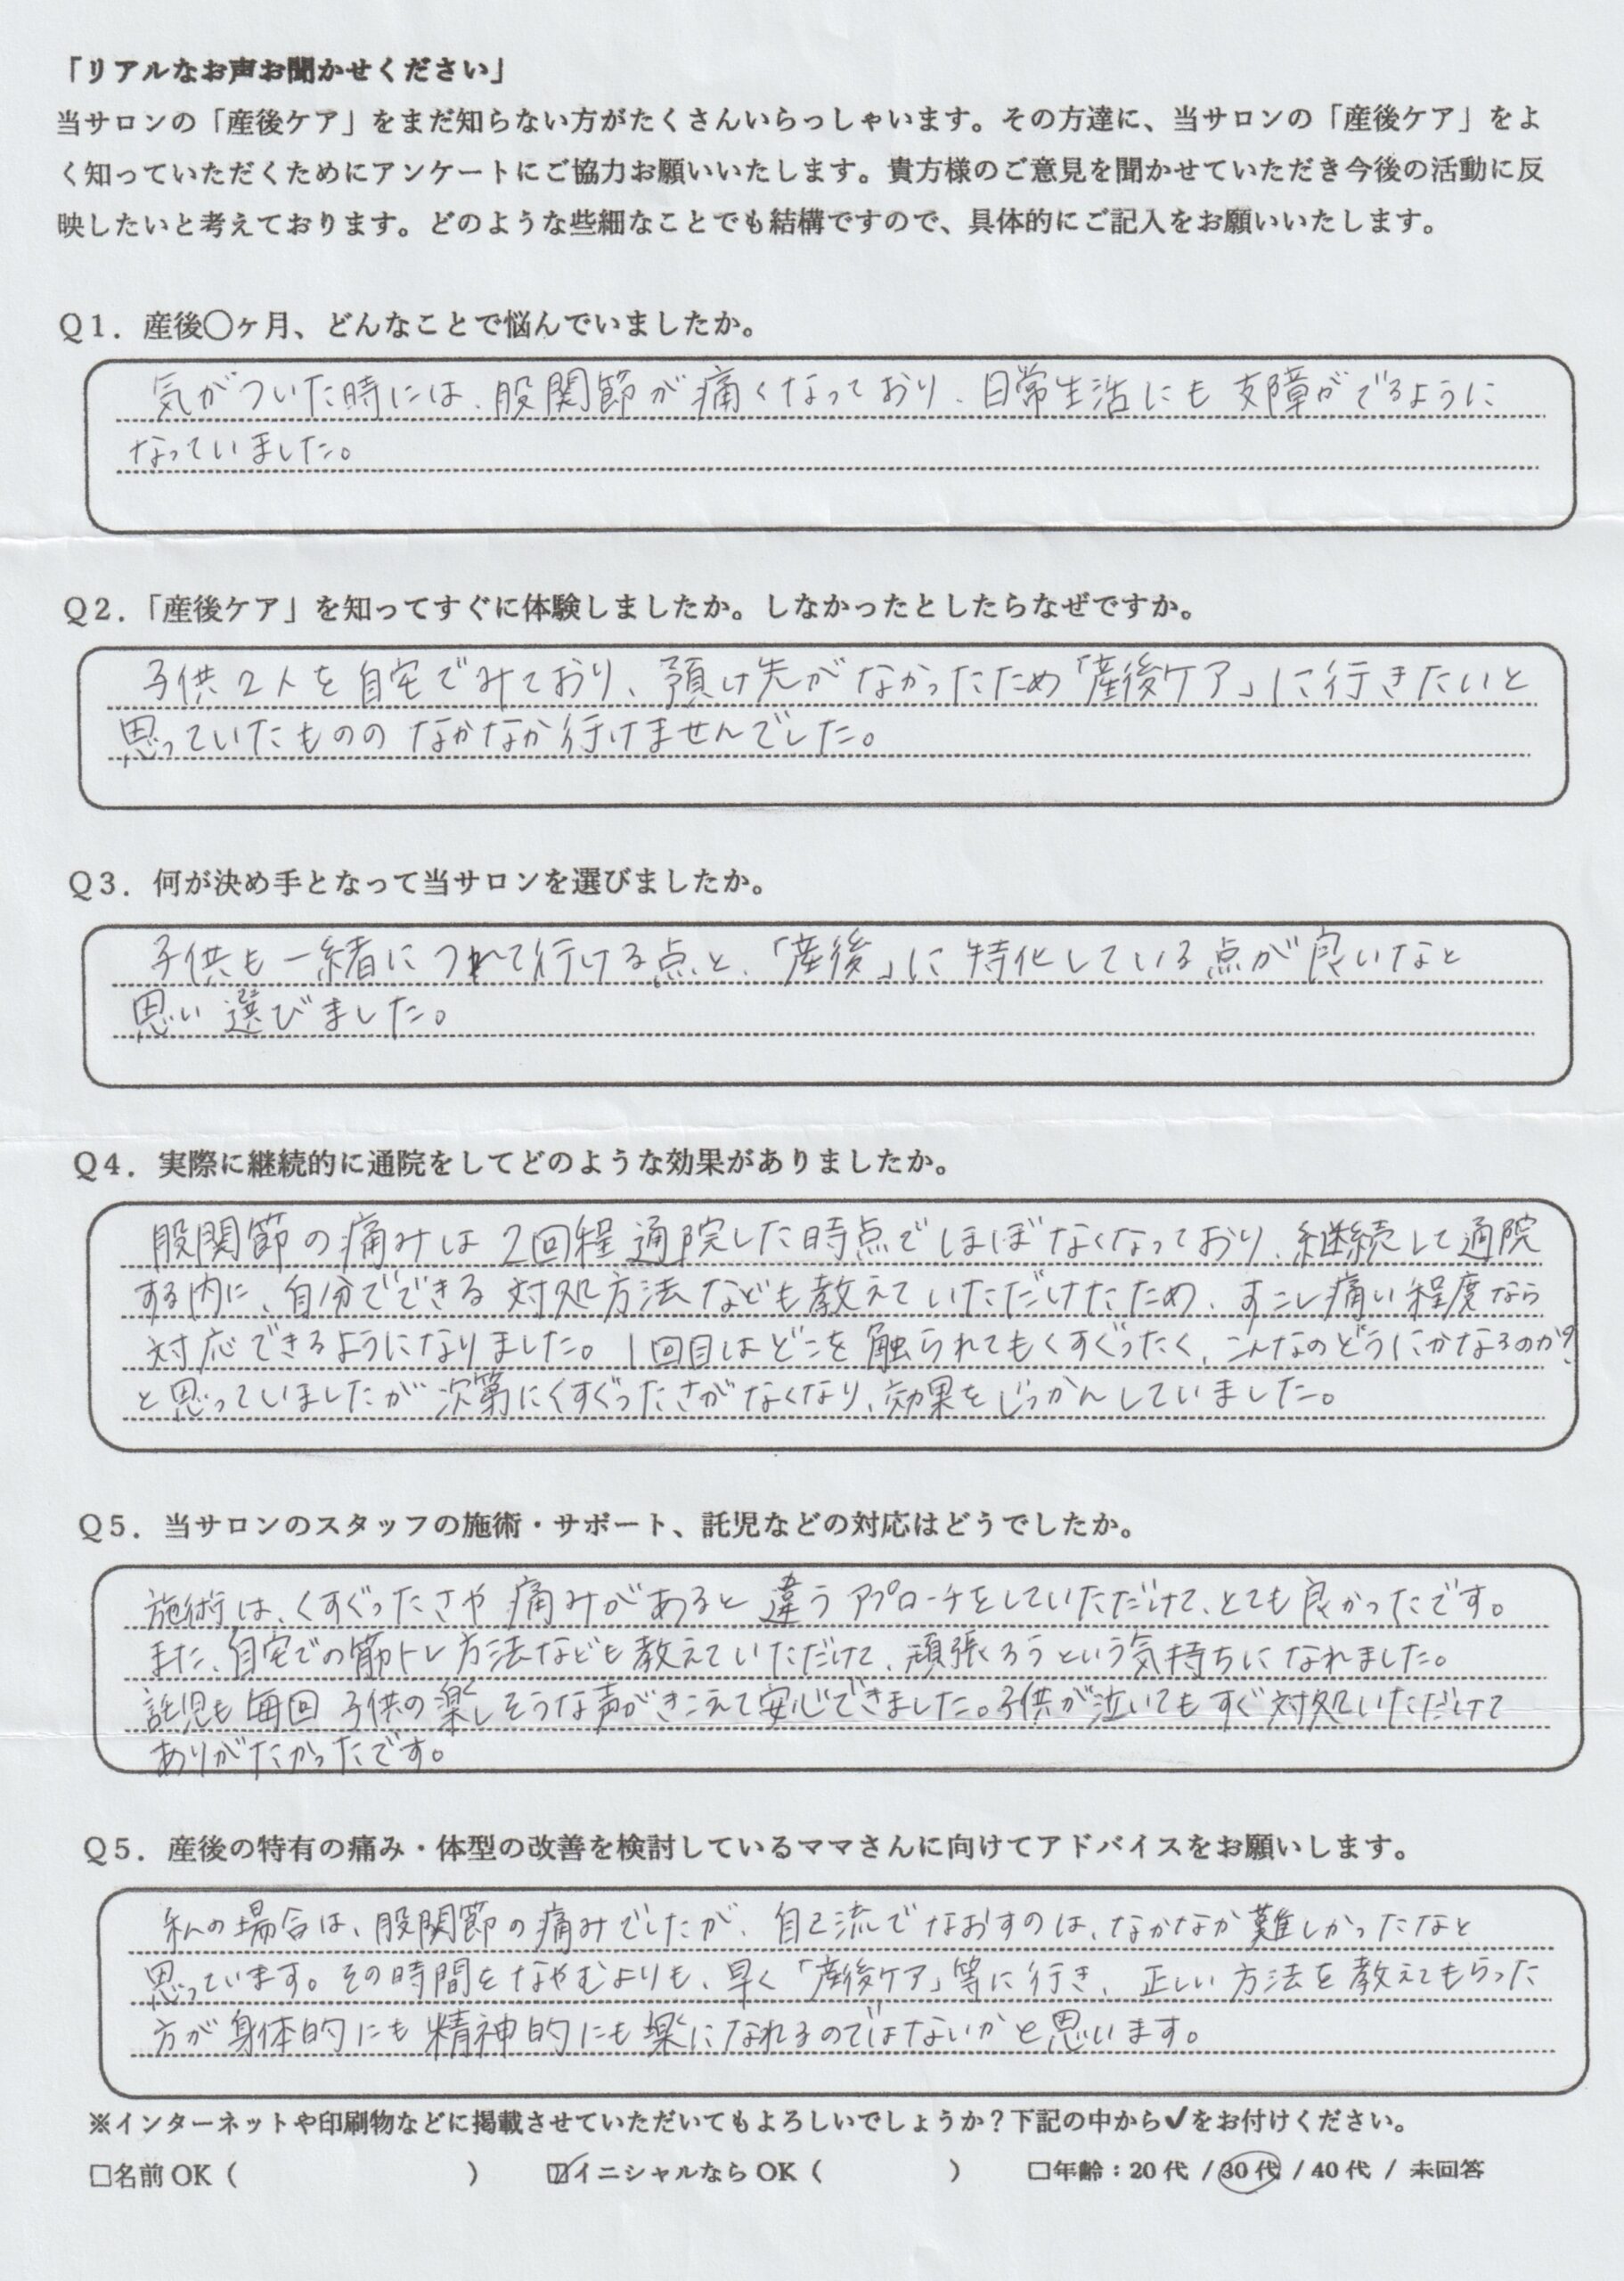 「リアルなお声お聞かせください」
当サロンの「産後ケア」をまだ知らない方がたくさんいらっしゃいます。その方達に、当サロンの「産後ケア」をよ
く知っていただくためにアンケートにご協力お願いいたします。貴方様のご意見を聞かせていただき今後の活動に反
映したいと考えております。どのような些細なことでも結構ですので、具体的にご記入をお願いいたします。
Q1．産後〇ヶ月、どんなことで悩んでいましたか。
気がついた時には、股関節が痛くなっており、日常生活にも支障がでるように
なっていました。
Q2．「産後ケア」を知ってすぐに体験しましたか。しなかったとしたらなぜですか。
子供2人を自宅でみており、預け先がなかったため「産後ケア」に行きたいと
思っていたもののなかなか行けませんでした。
Q3．何が決め手となって当サロンを選びましたか。
子供も一緒につれて行ける点と、「産後」に特化している点が良いなと
思い選びました。
Q4．実際に継続的に通院をしてどのような効果がありましたか。
股関節の痛みは2回程通院した時点でほぼなくなっており、継続して通院
する内に、自分でできる対処方法なども教えていただけたため、すこし痛い程度なら
対応できるようになりました。1回目はどこを触られてもくすぐったく、こんなのどうにかなるのか?
と思っていましたが次第にくすぐったさがなくなり、効果をじっかんしていました。
Q5．当サロンのスタッフの施術・サポート、託児などの対応はどうでしたか。
施術は、くすぐったさや痛みがあると違うアプローチをしていただけて、とても良かったです。
また、自宅での筋トレ方法なども教えていただけて、頑張ろうという気持ちになれました。
託児も毎回子供の楽しそうな声がきこえて安心できました。子供が泣いてもすぐ対処いただけて
ありがたかったです。
Q5．産後の特有の痛み・体型の改善を検討しているママさんに向けてアドバイスをお願いします。
私の場合は、股関節の痛みでしたが、自己流でなおすのは、なかなか難しかったなと
思っています。その時間をなやむよりも、早く「産後ケア」等に行き、正しい方法を教えてもらった
方が身体的にも精神的にも楽になれるのではないかと思います。
※インターネットや印刷物などに掲載させていただいてもよろしいでしょうか？下記の中から✔をお付けください。
□名前 OK（　　　　　　　　） ☑イニシャルなら OK（　　　　　） □年齢：20代 / 30代 / 40代 / 未回答